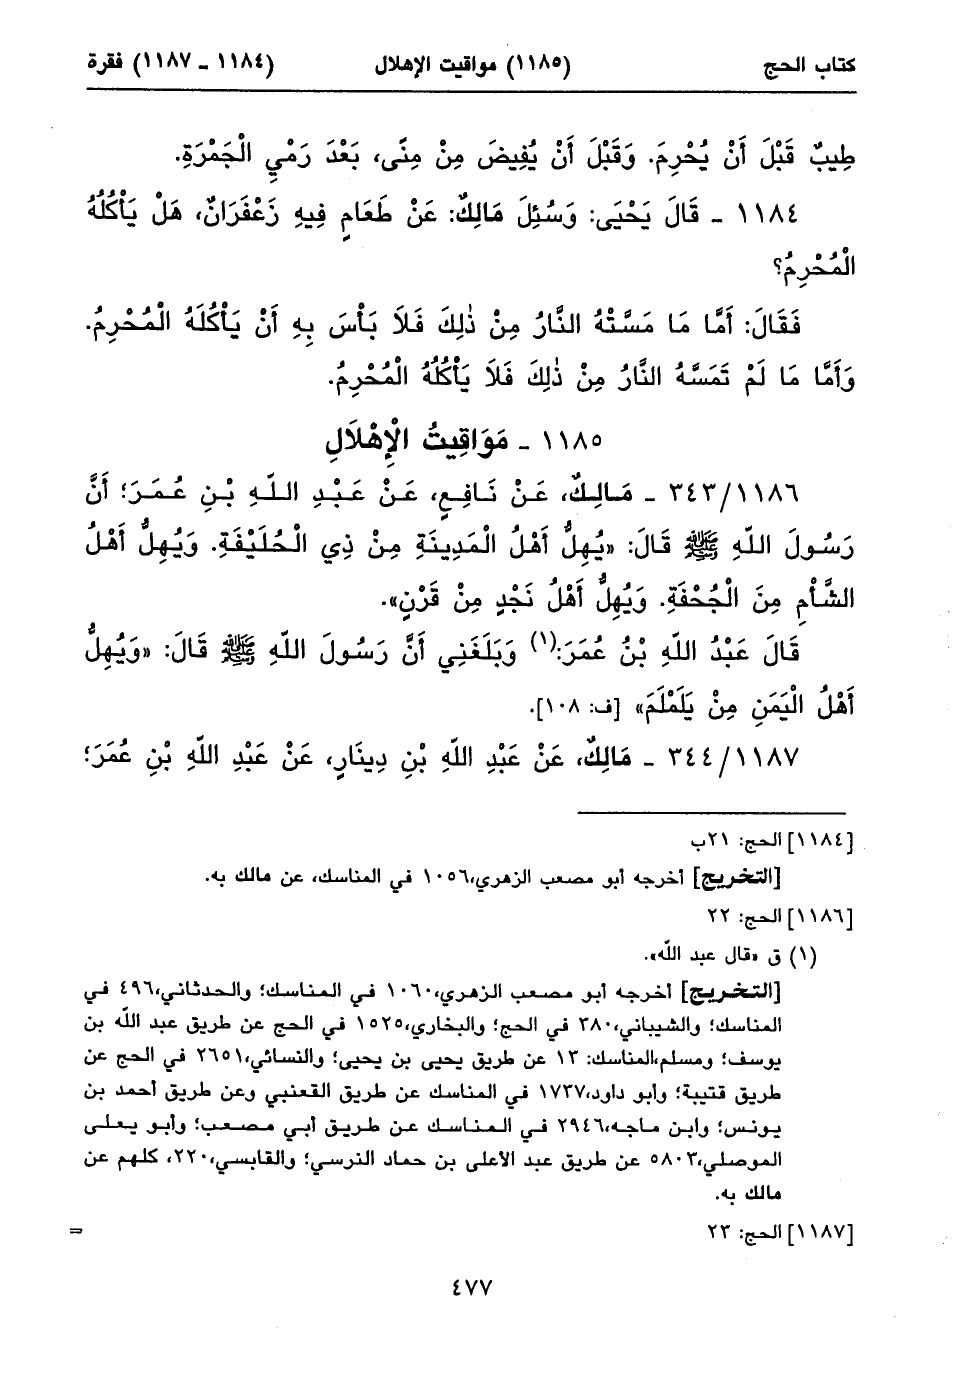 كتاب الحج (١١٨٥) مواقيت الإهلال (١١٨٤ ـ ١١٨٧) فقرة
طِيبٌ قَبْلَ أَنْ يُحْرِمَ. وَقَبْلَ أَنْ يُفِيضَ مِنْ مِنًى، بَعْدَ رَمْيِ الْجَمْرَةِ.
١١٨٤ ـ قَالَ يَحْيَى: وَسُئِلَ مَالِكٌ: عَنْ طَعَامٍ فِيهِ زَعْفَرَانٌ، هَلْ يَأْكُلُهُ
الْمُحْرِمُ؟
فَقَالَ: أَمَّا مَا مَسَّتْهُ النَّارُ مِنْ ذٰلِكَ فَلاَ بَأْسَ بِهِ أَنْ يَأْكُلَهُ الْمُحْرِمُ.
وَأَمَّا مَا لَمْ تَمَسَّهُ النَّارُ مِنْ ذٰلِكَ فَلاَ يَأْكُلُهُ الْمُحْرِمُ.
١١٨٥ ـ مَوَاقِيتُ الإِهْلاَلِ
٣٤٣/١١٨٦ ـ مَالِكٌ، عَنْ نَافِعٍ، عَنْ عَبْدِ اللّهِ بْنِ عُمَرَ؛ أَنَّ
رَسُولَ اللّهِ ﷺ قَالَ: «يُهِلُّ أَهْلُ الْمَدِينَةِ مِنْ ذِي الْحُلَيْفَةِ. وَيُهِلُّ أَهْلُ
الشَّأْمِ مِنَ الْجُحْفَةِ. وَيُهِلُّ أَهْلُ نَجْدٍ مِنْ قَرْنٍ».
قَالَ عَبْدُ اللّهِ بْنُ عُمَرَ:(١) وَبَلَغَنِي أَنَّ رَسُولَ اللّهِ ﷺ قَالَ: «وَيُهِلُّ
أَهْلُ الْيَمَنِ مِنْ يَلَمْلَمَ» [ف: ١٠٨].
٣٤٤/١١٨٧ ـ مَالِكٌ، عَنْ عَبْدِ اللّهِ بْنِ دِينَارٍ، عَنْ عَبْدِ اللّهِ بْنِ عُمَرَ؛
[١١٨٤] الحج: ٢١ب
[التخريج] أخرجه أبو مصعب الزهري،١٠٥٦ في المناسك، عن مالك به.
[١١٨٦] الحج: ٢٢
(١) ق «قال عبد اللّه».
[التخريج] أخرجه أبو مصعب الزهري،١٠٦٠ في المناسك؛ والحدثاني،٤٩٦ في
المناسك؛ والشيباني،٣٨٠ في الحج؛ والبخاري،١٥٢٥ في الحج عن طريق عبد اللّه بن
يوسف؛ ومسلم،المناسك: ١٣ عن طريق يحيى بن يحيى؛ والنسائي،٢٦٥١ في الحج عن
طريق قتيبة؛ وأبو داود،١٧٣٧ في المناسك عن طريق القعنبي وعن طريق أحمد بن
يونس؛ وابن ماجه،٢٩٤٦ في المناسك عن طريق أبي مصعب؛ وأبو يعلى
الموصلي،٥٨٠٣ عن طريق عبد الاعلى بن حماد النرسي؛ والقابسي،٢٢٠، كلهم عن
مالك به.
[١١٨٧] الحج: ٢٣ =
٤٧٧